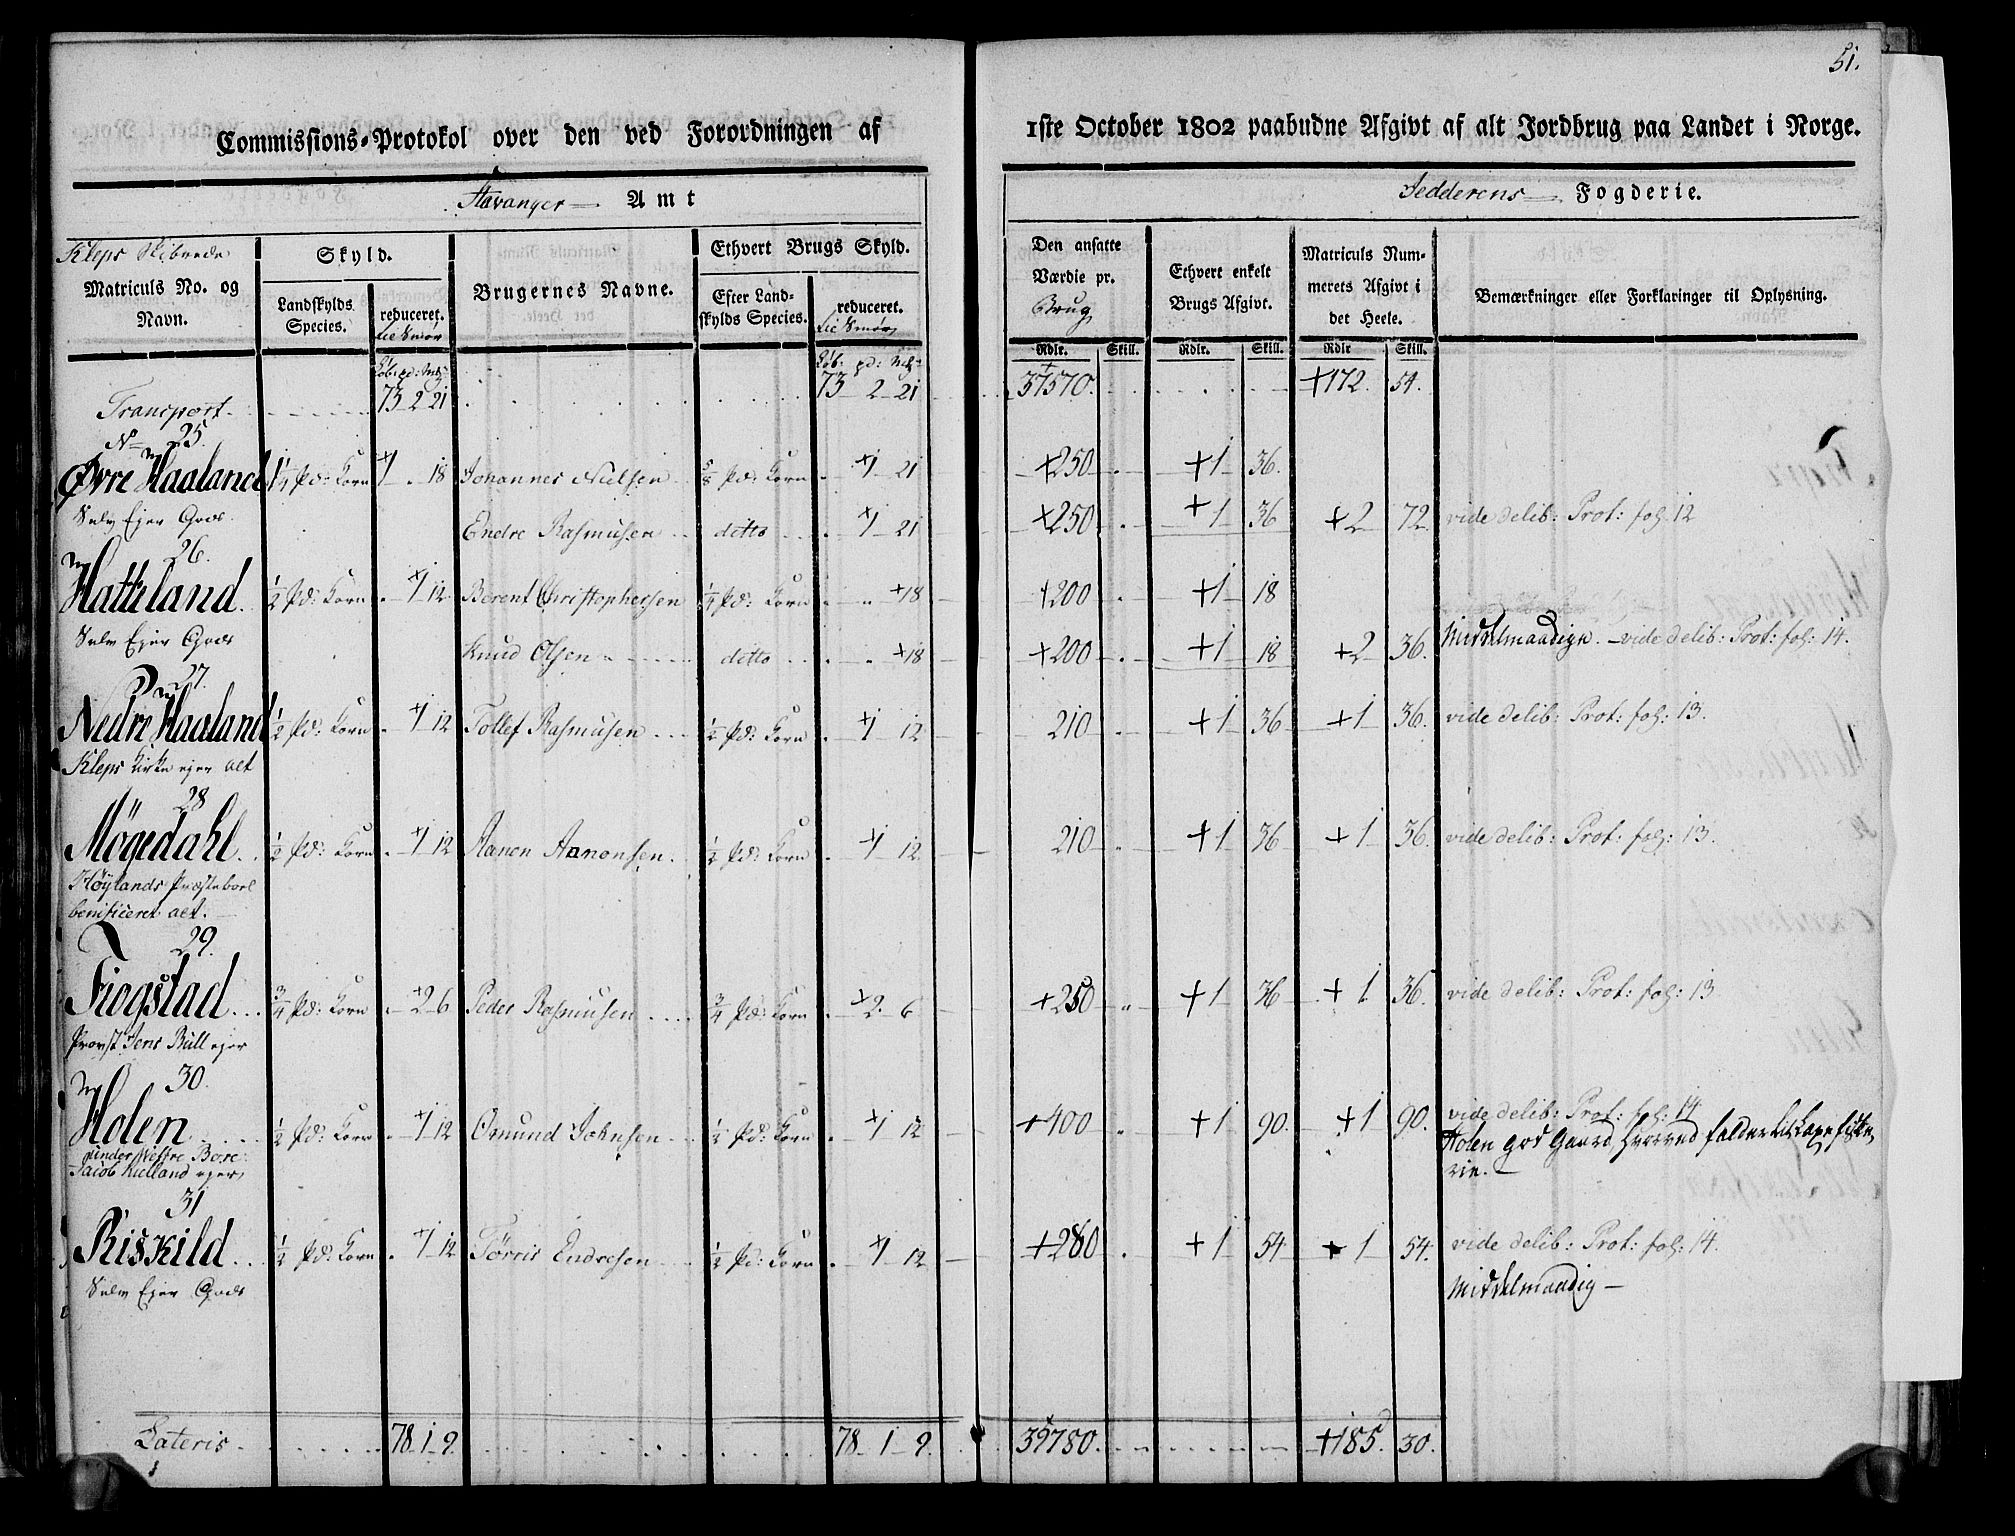 51.
Commissions-Protokol over den ved Forordningen af 1ste October 1802 paabudne Afgivt af alt Jordbrug paa Landet i Norge.
Stavanger Amt
Jedderens Fogderie.
Kleps Skibrede
Matriculs No. og Navn.
Skyld.
Landskylds Species.
reduceret. Lie Smør
Brugernes Navne.
Ethvert Brugs Skyld.
Efter Landskylds Species.
reduceret. Lie Smør
Den ansatte Værdie pr. Brug
Ethvert enkelt Brugs Afgivt.
Matriculs Nummerets Afgivt i det Heele.
Bemærkninger eller Forklaringer til Oplysning.
Rdlr. Skill. Rdlr. Skill. Rdlr Skill.
Løb: pd: Mk: Løb: pd: Mk:
Transport 73 2 21 73 2 21 37570. +172. 54.
No 25.
Øvre Haaland 1¼ Pd: Korn +1 . 18 Johannes Nielsen ⅝ Pd: Korn +1 21 +250 +1 36.
Selv Ejer Gods. Endre Rasmusen detto +1 21 +250 +1 36 +2 72 vide delib: Prot: fol: 12
26.
Hatteland. ½ Pd: Korn +1 12 Berent Christophersen ¼ Pd: Korn +18 +200 +1 18
Selv Ejer Gods Knud Olsen detto +18 +200 +1 18 +2 36. Middelmaadig. vide delib: Prot: fol: 14.
27.
Nedre Haaland ½ Pd: Korn +1 12 Tollef Rasmusen ½ Pd: Korn +1 12 210 +1 36 +1 36. vide delib: Prot: fol: 13.
Kleps Kirke ejer alt
28
Møgedahl ½ Pd: Korn +1 12 Aanen Aanonsen. ½ Pd: Korn +1 12. 210 +1 36 +1 36. vide delib: Prot: fol: 13.
Høylands Præstebord
benificeret alt.
29.
Fiogstad ¾ Pd: Korn +2 6 Peder Rasmusen ¾ Pd: Korn +2. 6 +250 +1 36 +1 36. vide delib: Prot: fol: 13
Provst Jens Bull ejer
30.
Holen ½ Pd: Korn +1 12 Omund Johnsen ½ Pd: Korn +1 12 +400 +1 90. +1 90. vide delib: Prot: fol: 14
under Westre Bore Holen god Gaard hvorved falder lit Laxefiske
Jacob Kielland ejer rie.
31
Riskild ½ Pd: Korn +1 12 Tørris Endresen ½ Pd: Korn +1 12 +280 +1 54 +1 54. vide delib: Prot: fol: 14.
Selv Ejer Gods Middelmaadig
Lateris 78 1 9. 78 1 9. 39780. +185. 30.